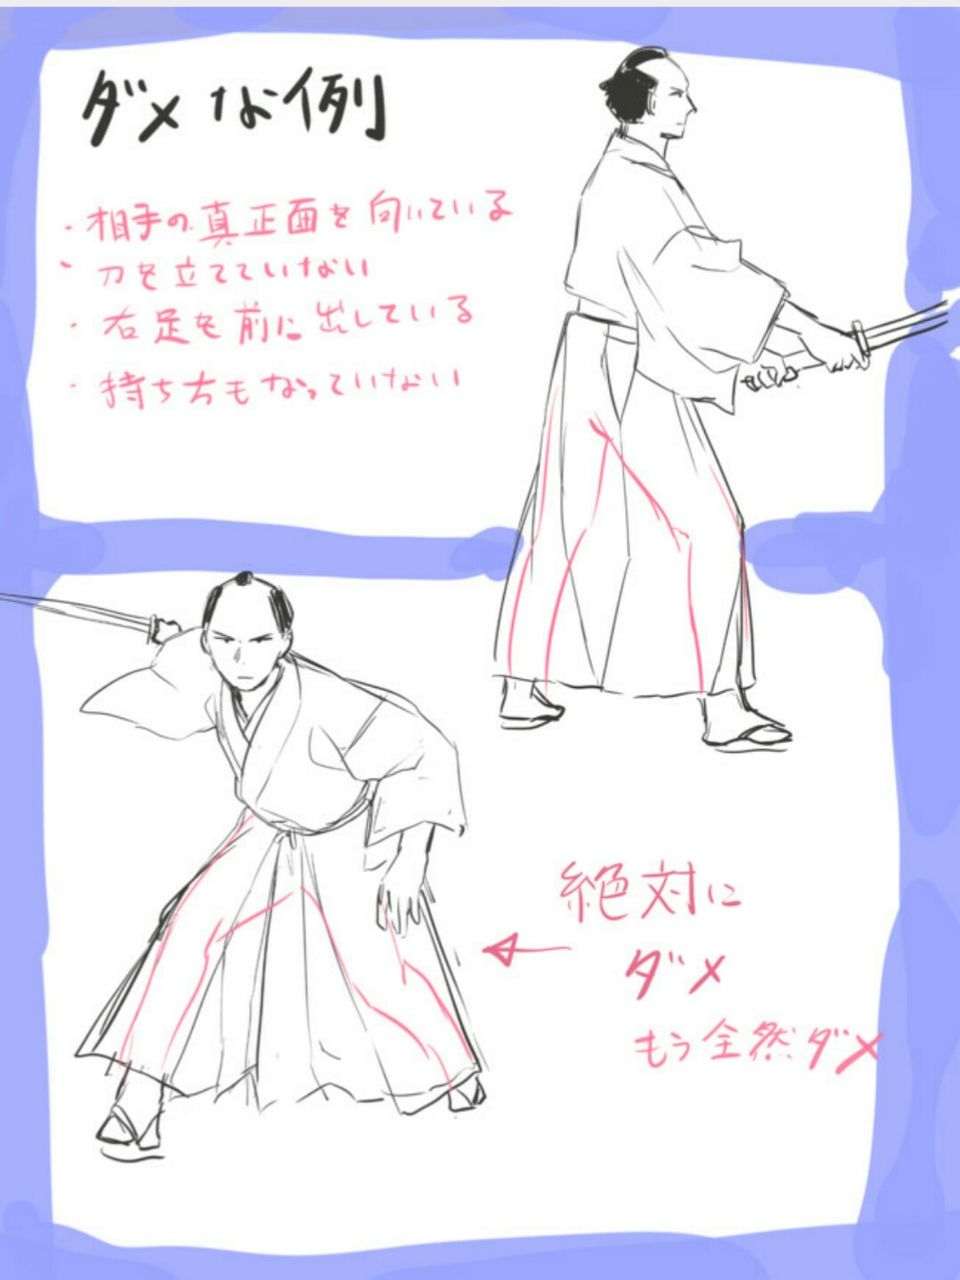 ダメな例
・相手の真正面を向いている
・刀を立てていない
・右足を前に出している
・持ち方もなっていない
絶対に
ダメ
もう全然ダメ